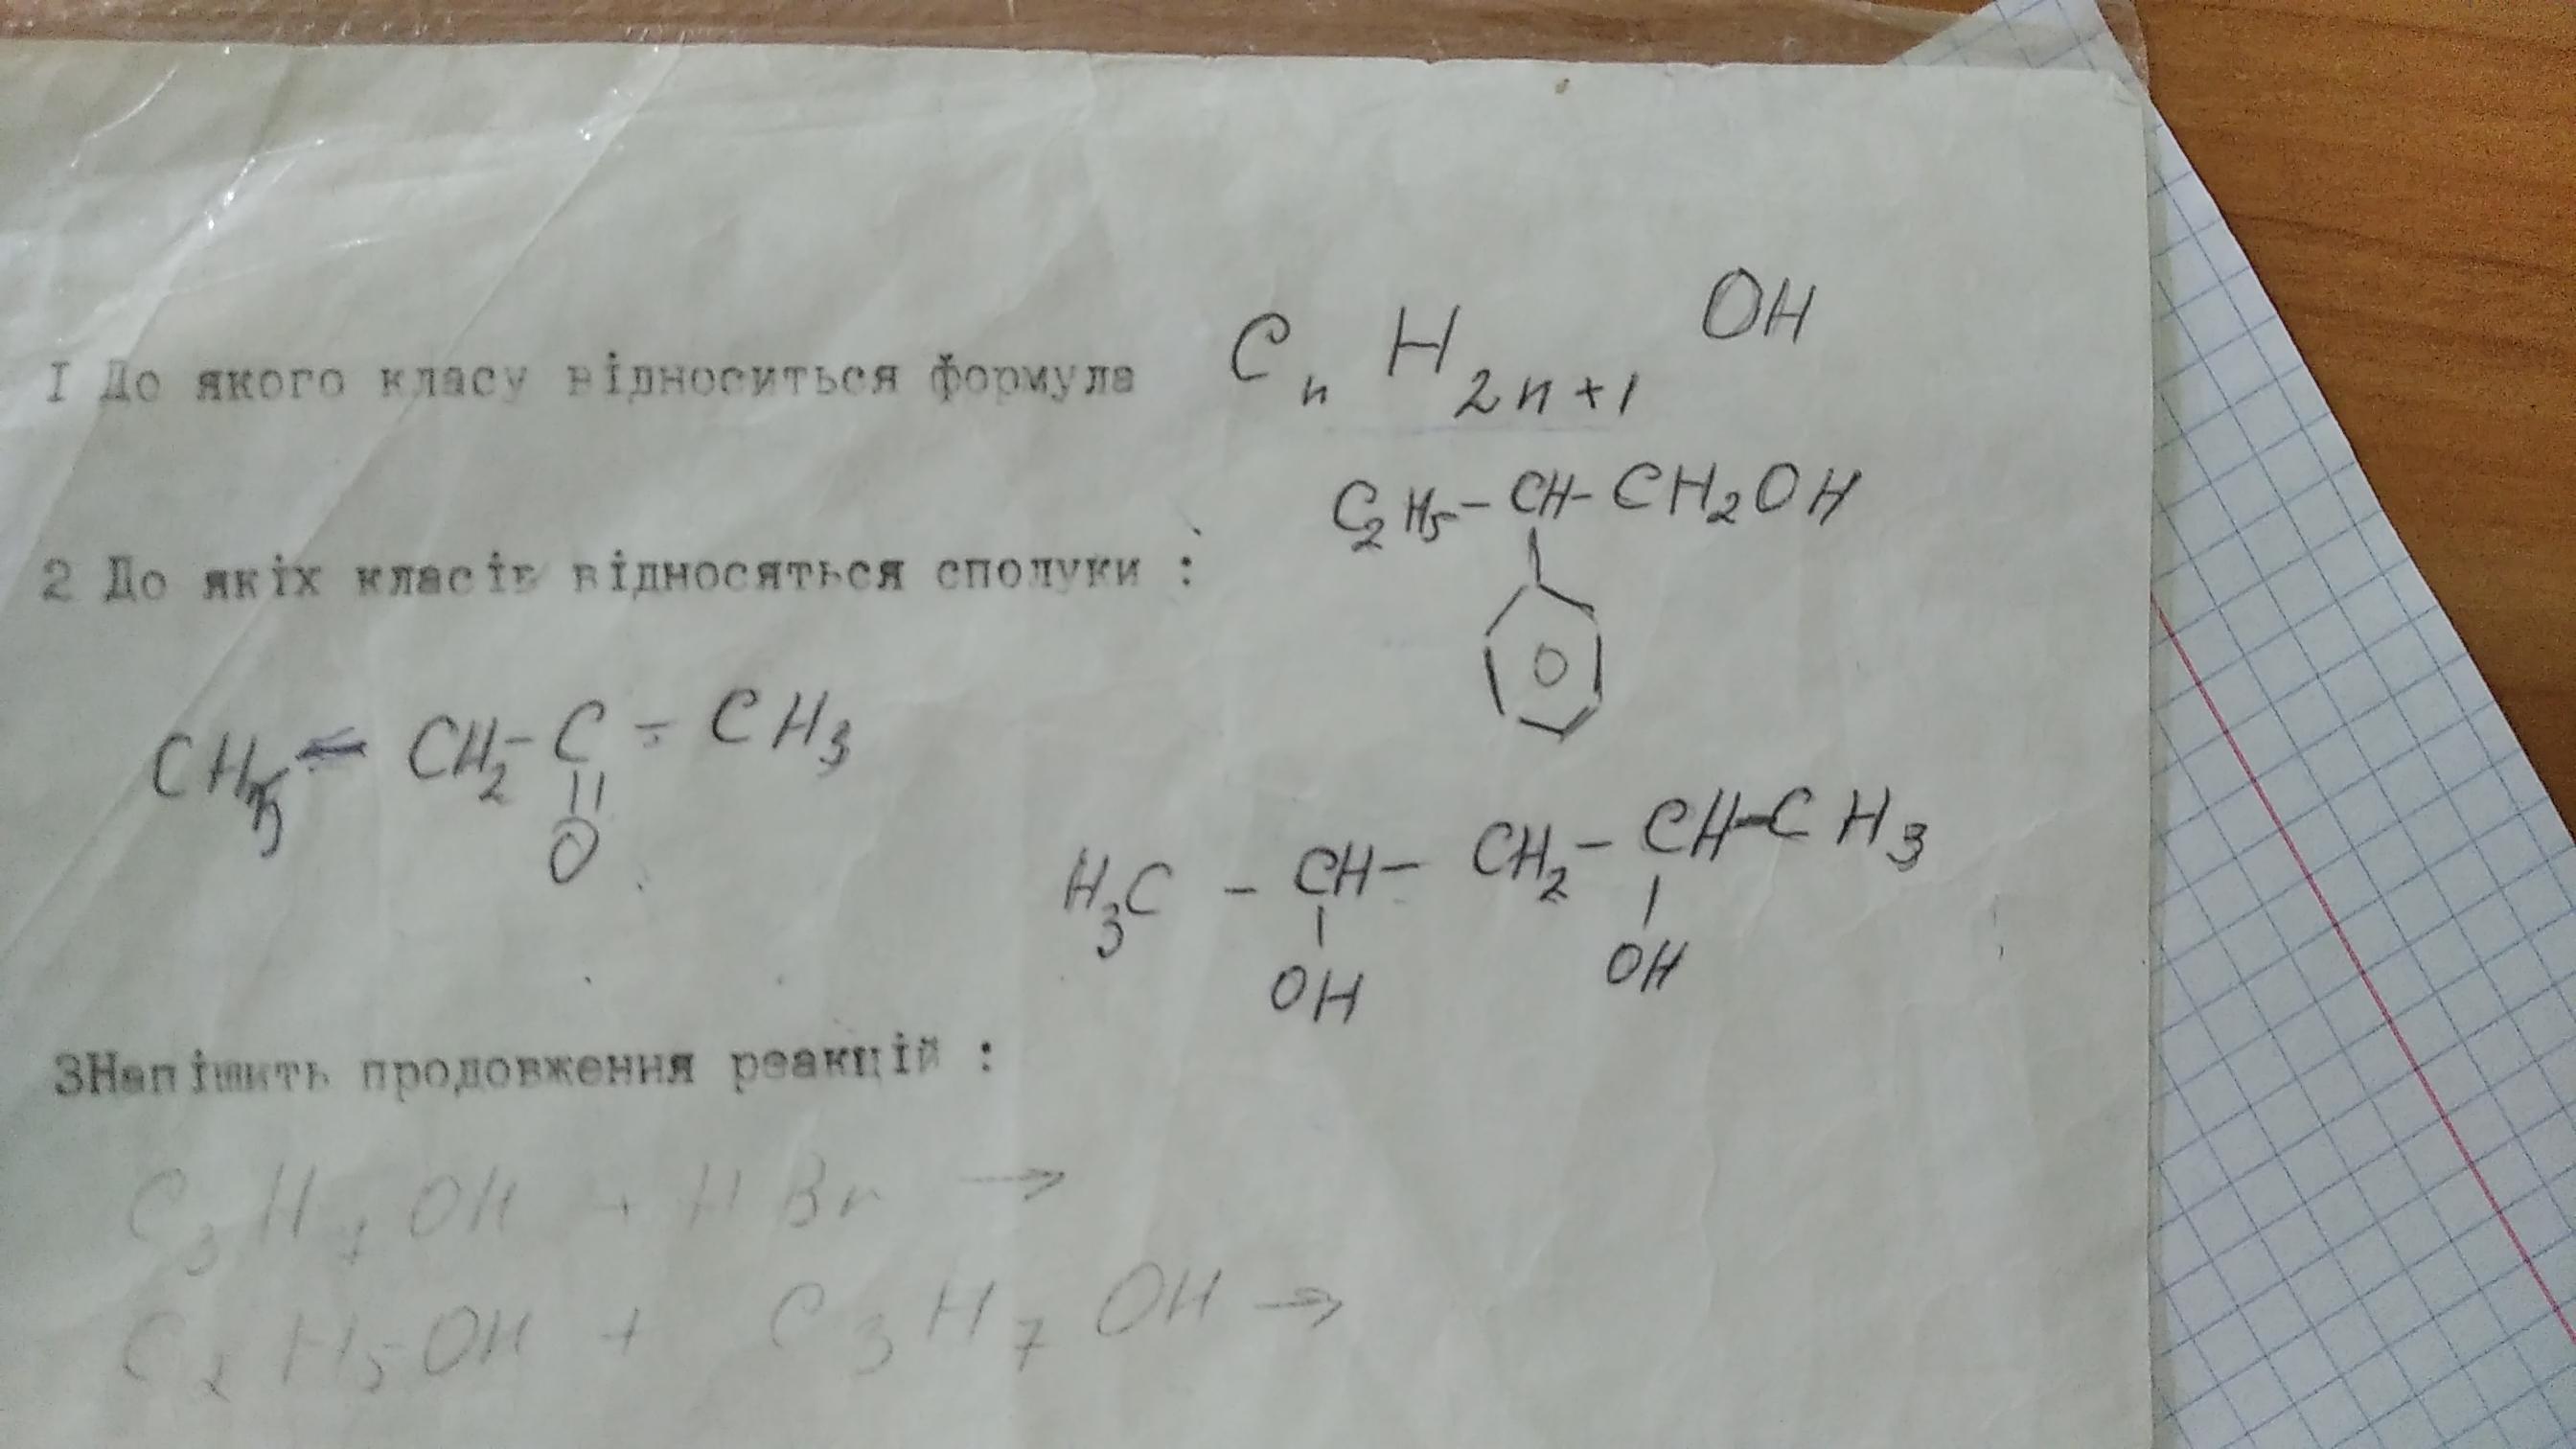 I До якого класу відноситься формула CnH2n+1OH
2 До якіх класів відносяться сполуки :
C2H5-CH-CH2OH
CH3-CH2-C-CH3
O
H3C-CH-CH2-CH-CH3
OH OH
3Напішить продовження реакцій :
C3H7OH + HBr →
C2H5OH + C3H7OH →